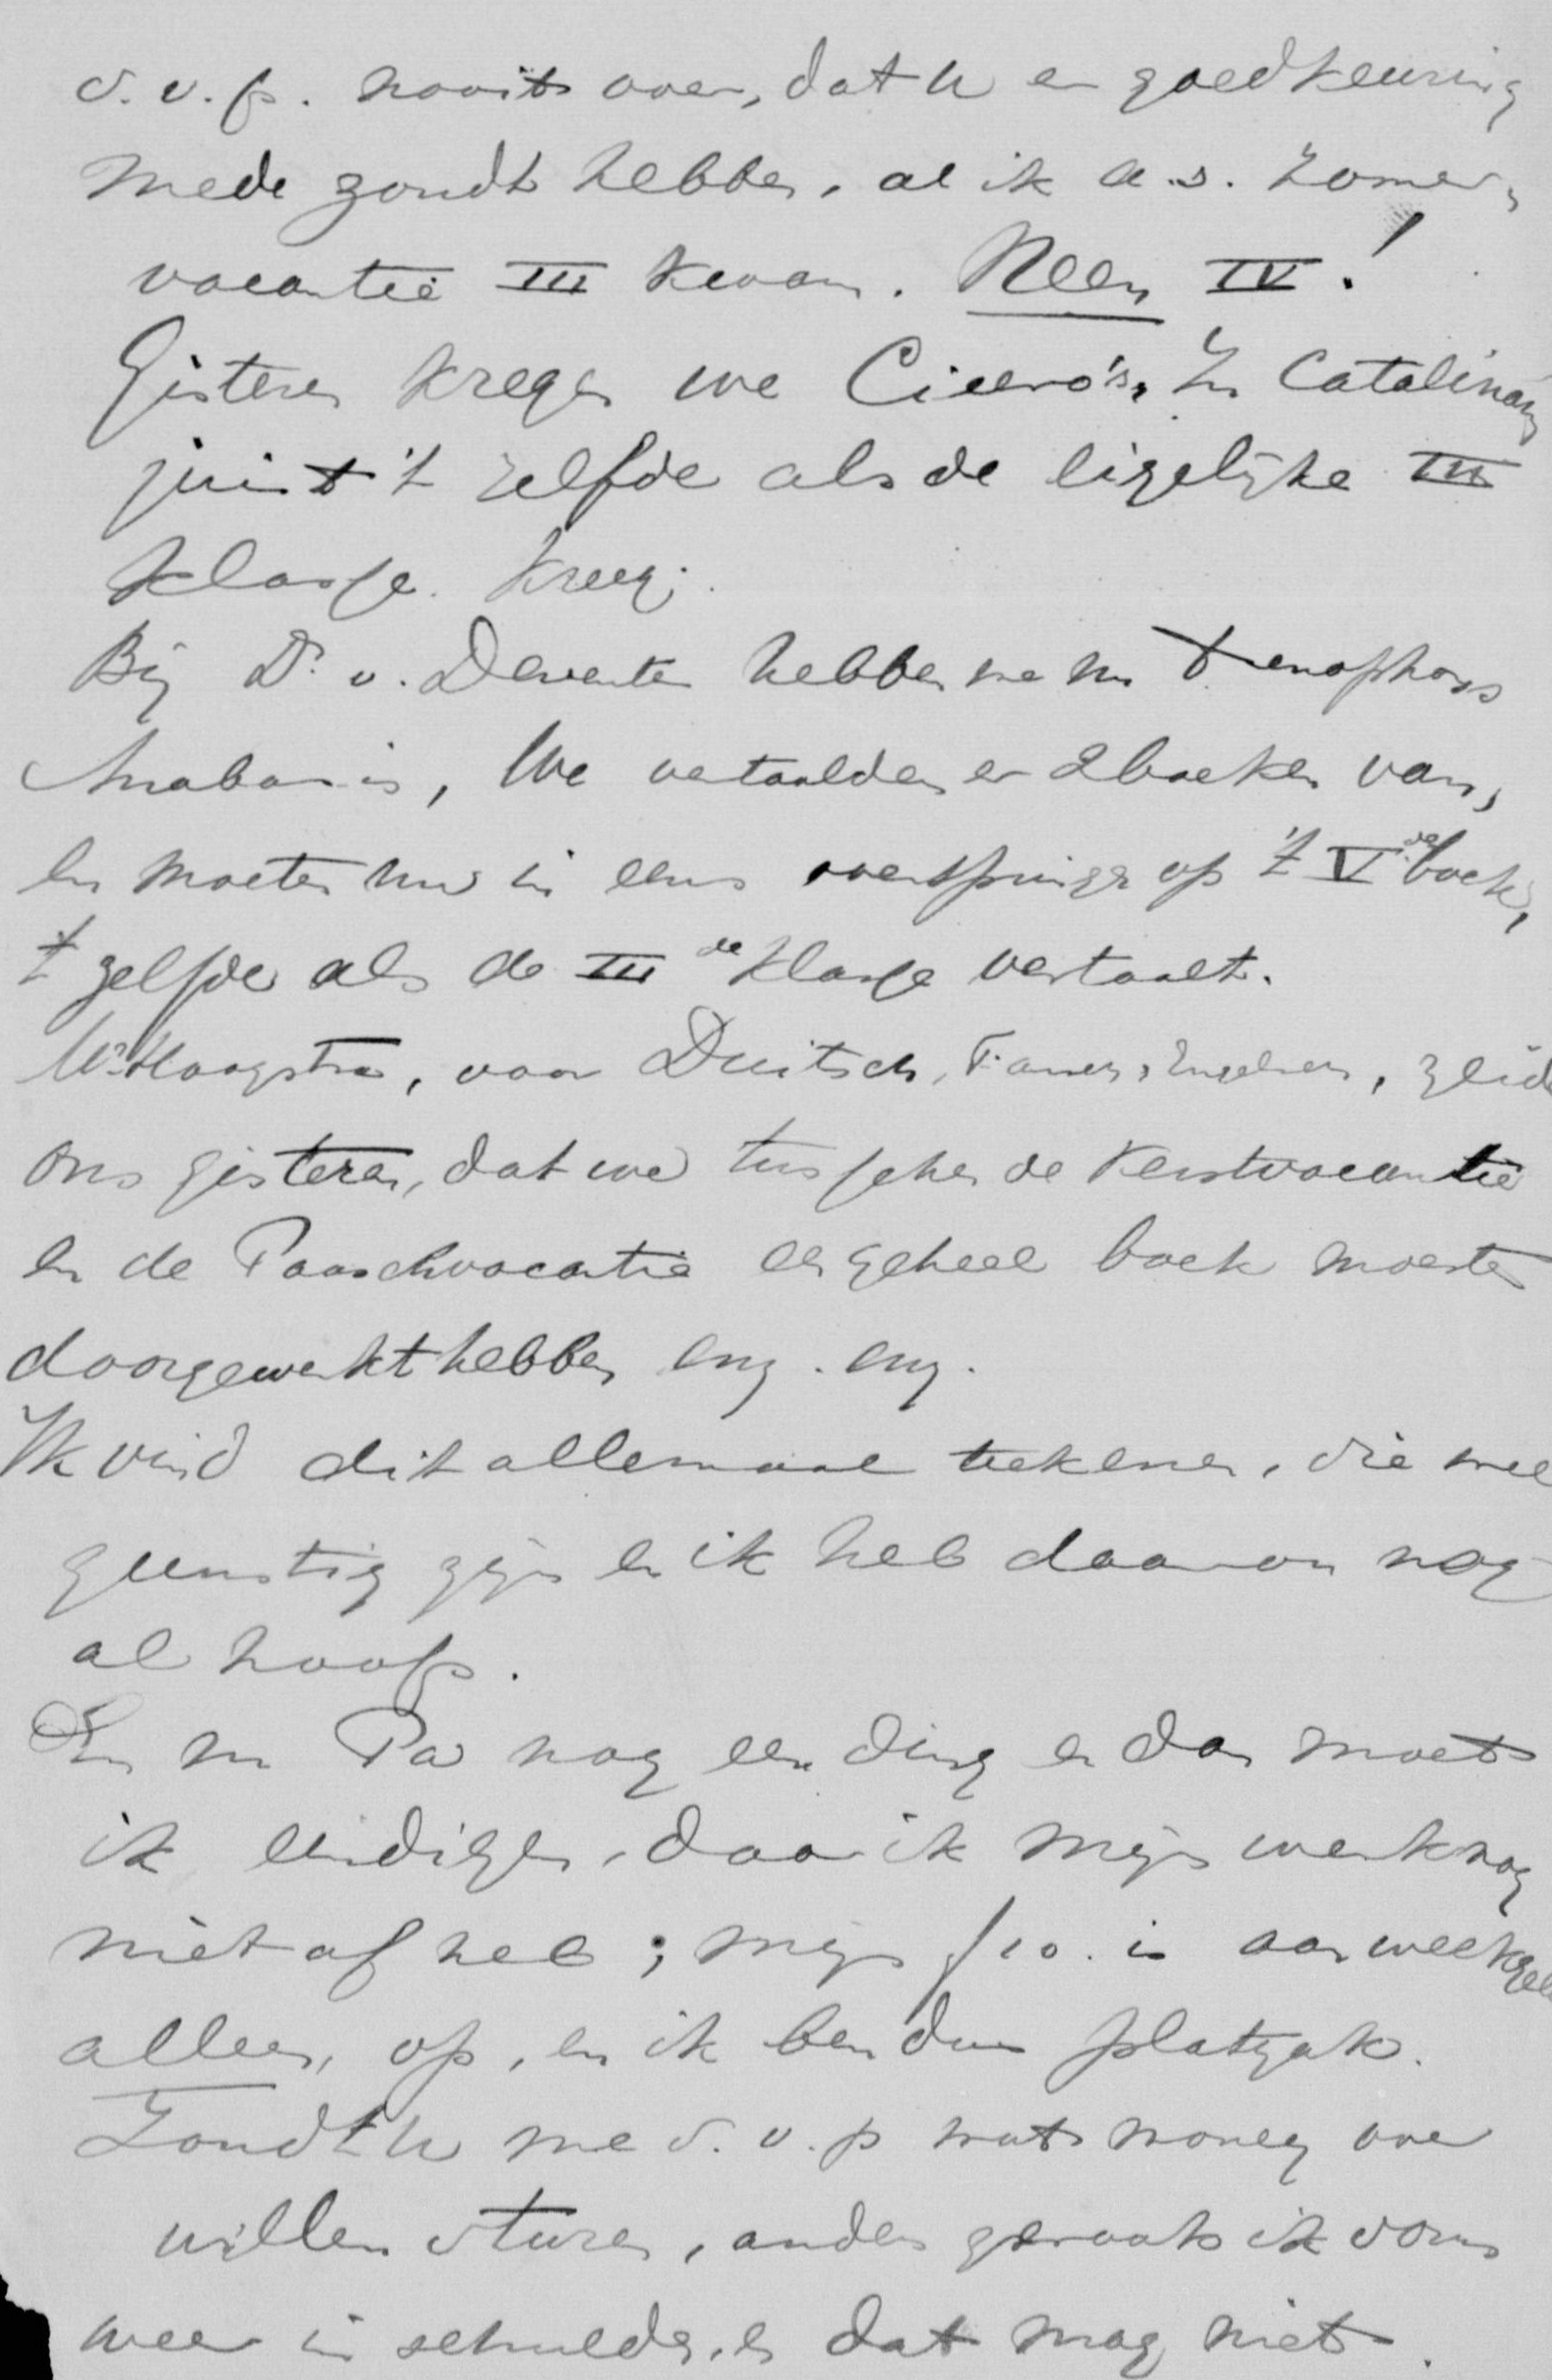 s.v.p. nooit over, dat U er goedkeuring
mede zoudt hebben, al ik a.s. zomer,
vacantie III kwam. Neen IV!
Gisteren kregen we Cicero's, In Catalinam
juist 't zelfde als de eigelijke III
klasse kreeg.
Bij Dr. v. Deventer hebben we nu Xenophons
Anabasis, We vertaalden er 2 boeken van,
en moeten nu in eens overspringen op 't Vde boek,
't zelfde als de IIIde klasse vertaalt.
Mr. Hoogstra, voor Duitsch, Fransch, Engelsch, zeide
ons gisteren, dat we tusschen de Kerstvacantie
en de Paaschvacantie een geheel boek moesten
doorgewerkt hebben enz. enz.
Ik vind dit allemaal teekenen, die wel
gunstig zijn en ik heb daarom nog
al hoop.
En nu Pa nog een ding en dan moet
ik eindigen, daar ik mijn werk nog
niet af heb; mijn f 10. is aan weekgeld
alleen, op, en ik ben dus platzak.
Zoudt U me s.v.p wat money over
willen sturen, anders geraak ik soms
weer in schulden, en dat mag niet.